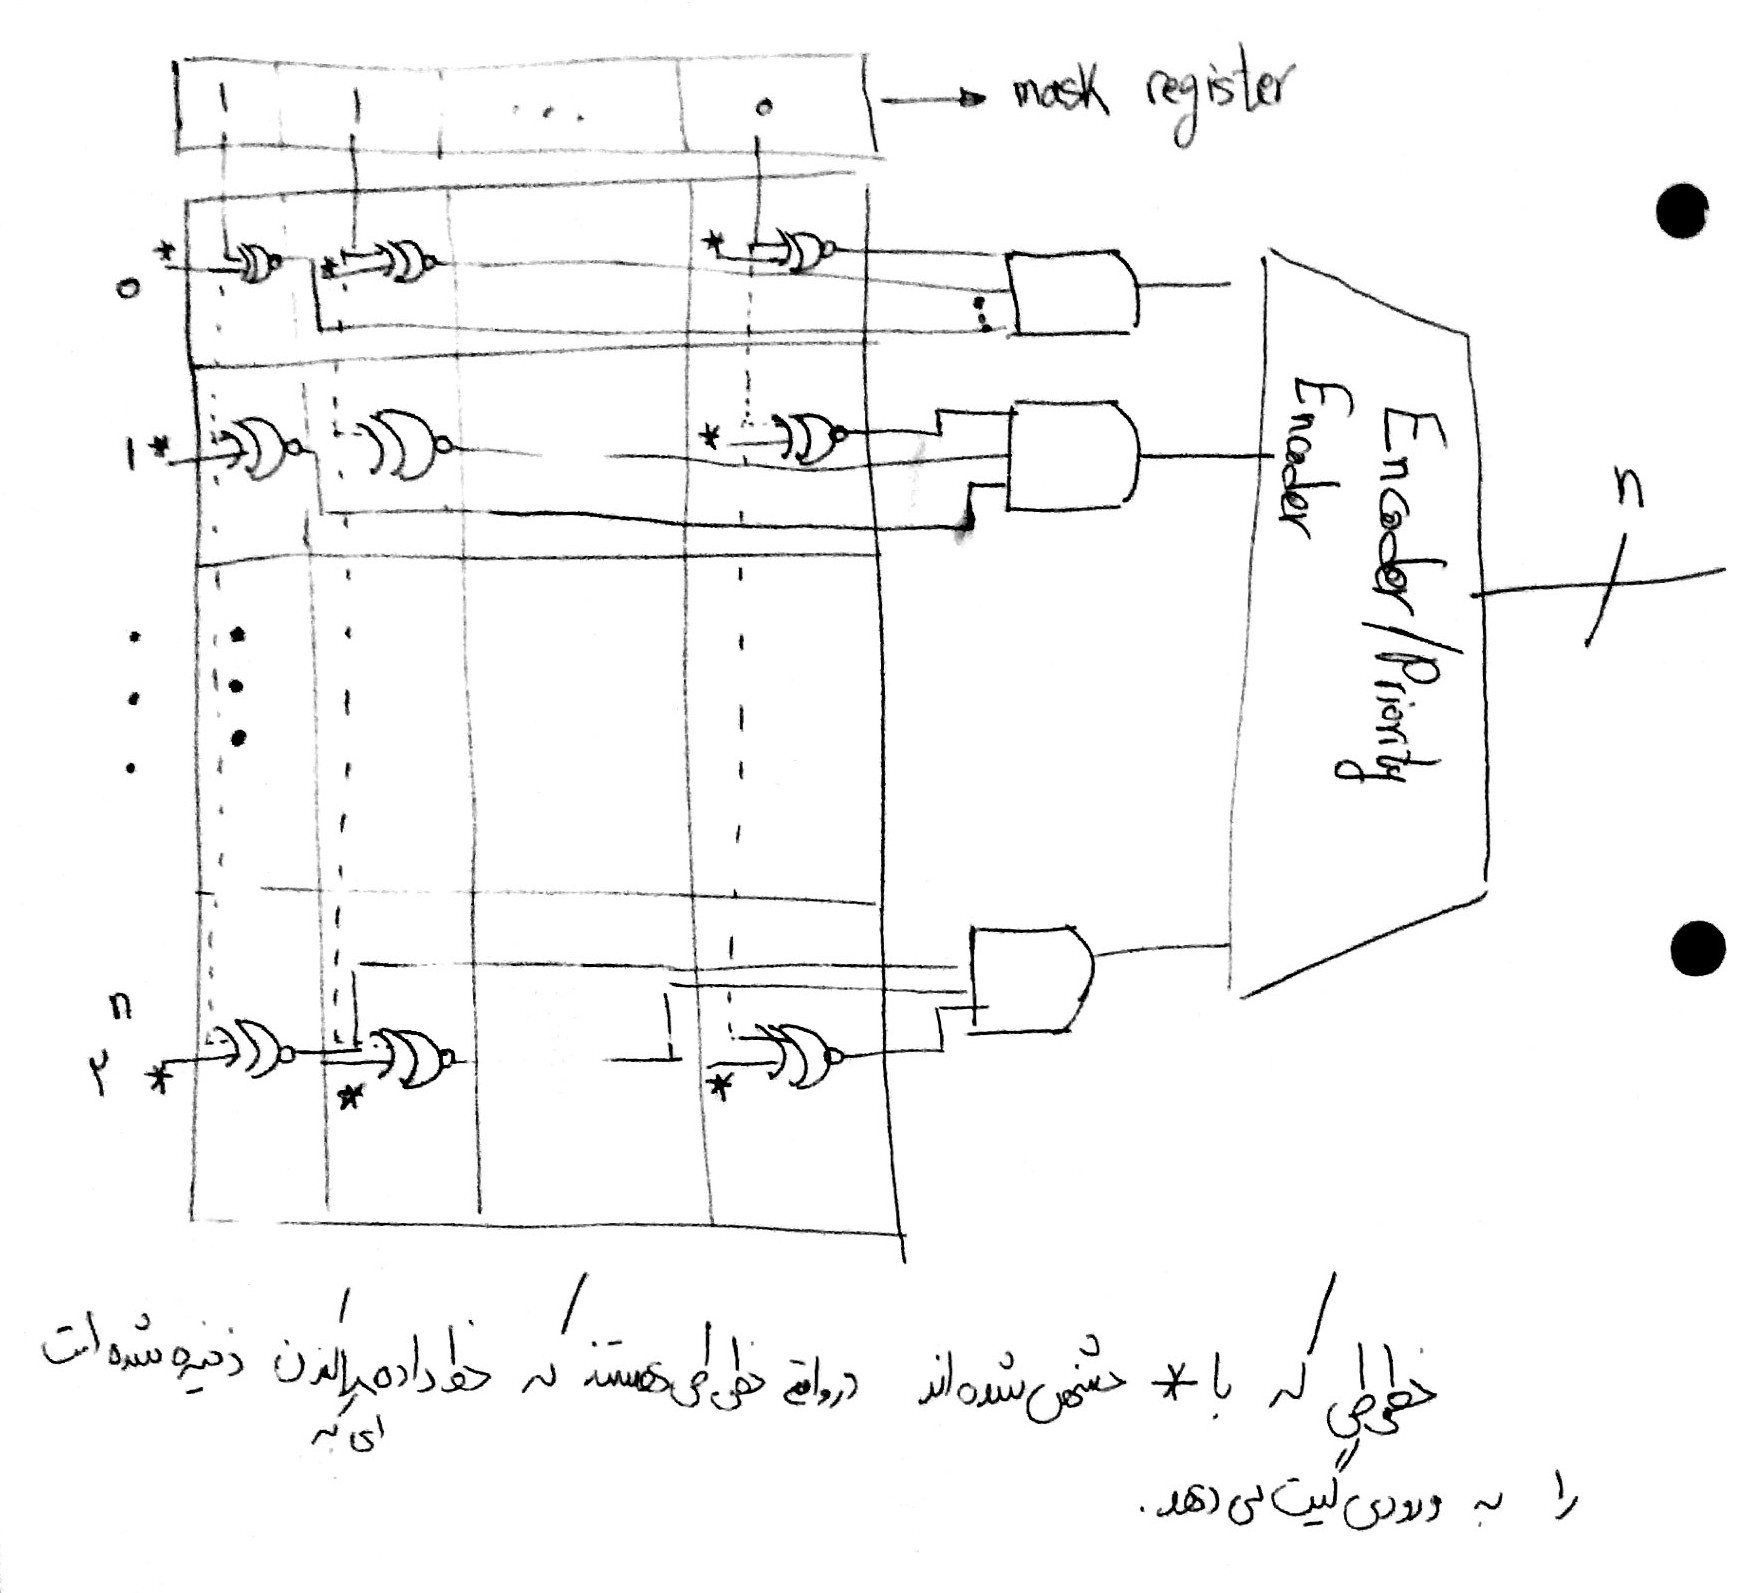 1 1 ... 0 → mask register
0 *
* *
1 * *
Encoder/Priority
Encoder
n
n
2 * * *
خطوطی که با * مشخص شده‌اند در واقع خطوطی هستند که خط داده ای که در آن ذخیره شده است
را به ورودی گیت می دهد.